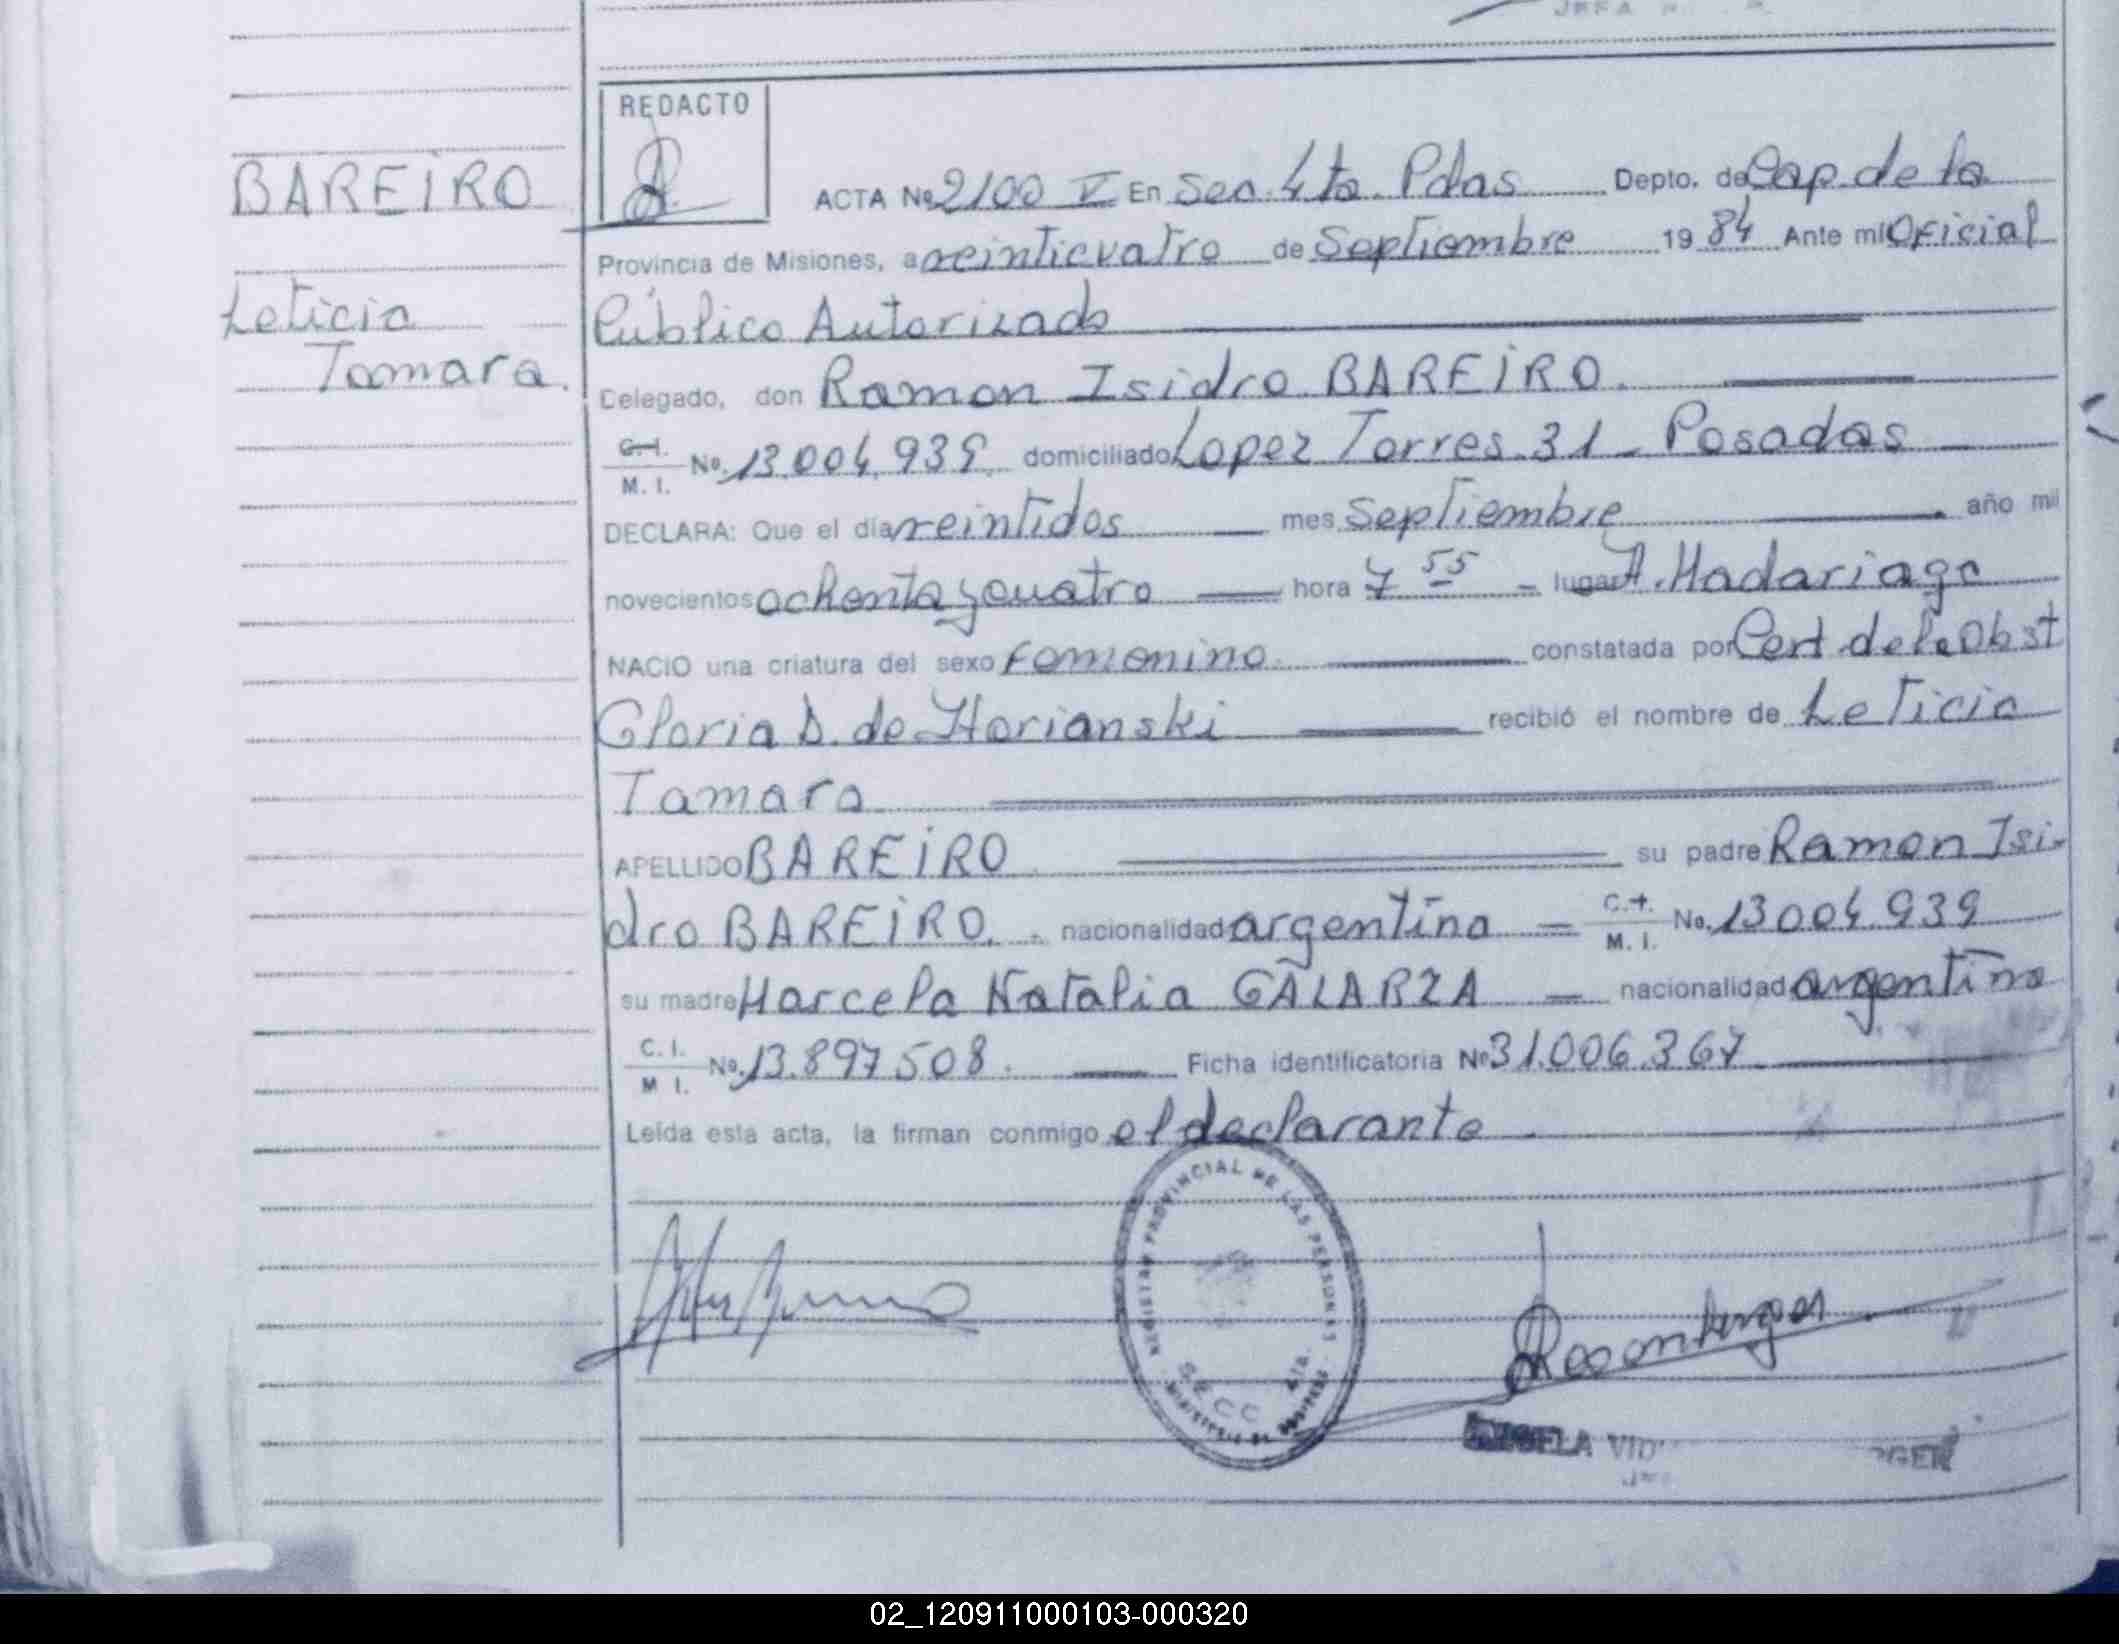 JEFA
REDACTO
BAREIRO
Leticia
Tamara.
ACTA Nº 2100 V En Sec. 4ta. Pdas Depto. de Cap. de la
Provincia de Misiones, a veinticuatro de Septiembre 19 84 Ante mi Oficial
Público Autorizado
Delegado, don Ramon Isidro BAREIRO.
C.I.
M. I. Nº. 13.004.939. domiciliado Lopez Torres 31 - Posadas
DECLARA: Que el día veintidos mes Septiembre año mil
novecientos ochenta y cuatro hora 7 55 lugar H. Madariaga
NACIO una criatura del sexo Femenino constatada por Cert. de la Obst
Gloria D. de Horianski recibió el nombre de Leticia
Tamara
APELLIDO BAREIRO su padre Ramon Isi-
dro BAREIRO. nacionalidad argentina C.I.
M. I. Nº. 13004.939
su madre Marcela Natalia GALARZA nacionalidad argentina
C. I.
M I. Nº. 13.897508. Ficha identificatoria Nº 31.006.367
Leída esta acta, la firman conmigo el declarante
REGISTRO PROVINCIAL DE LAS PERSONAS
SECC 4ta.
Rosenberger
02_120911000103-000320